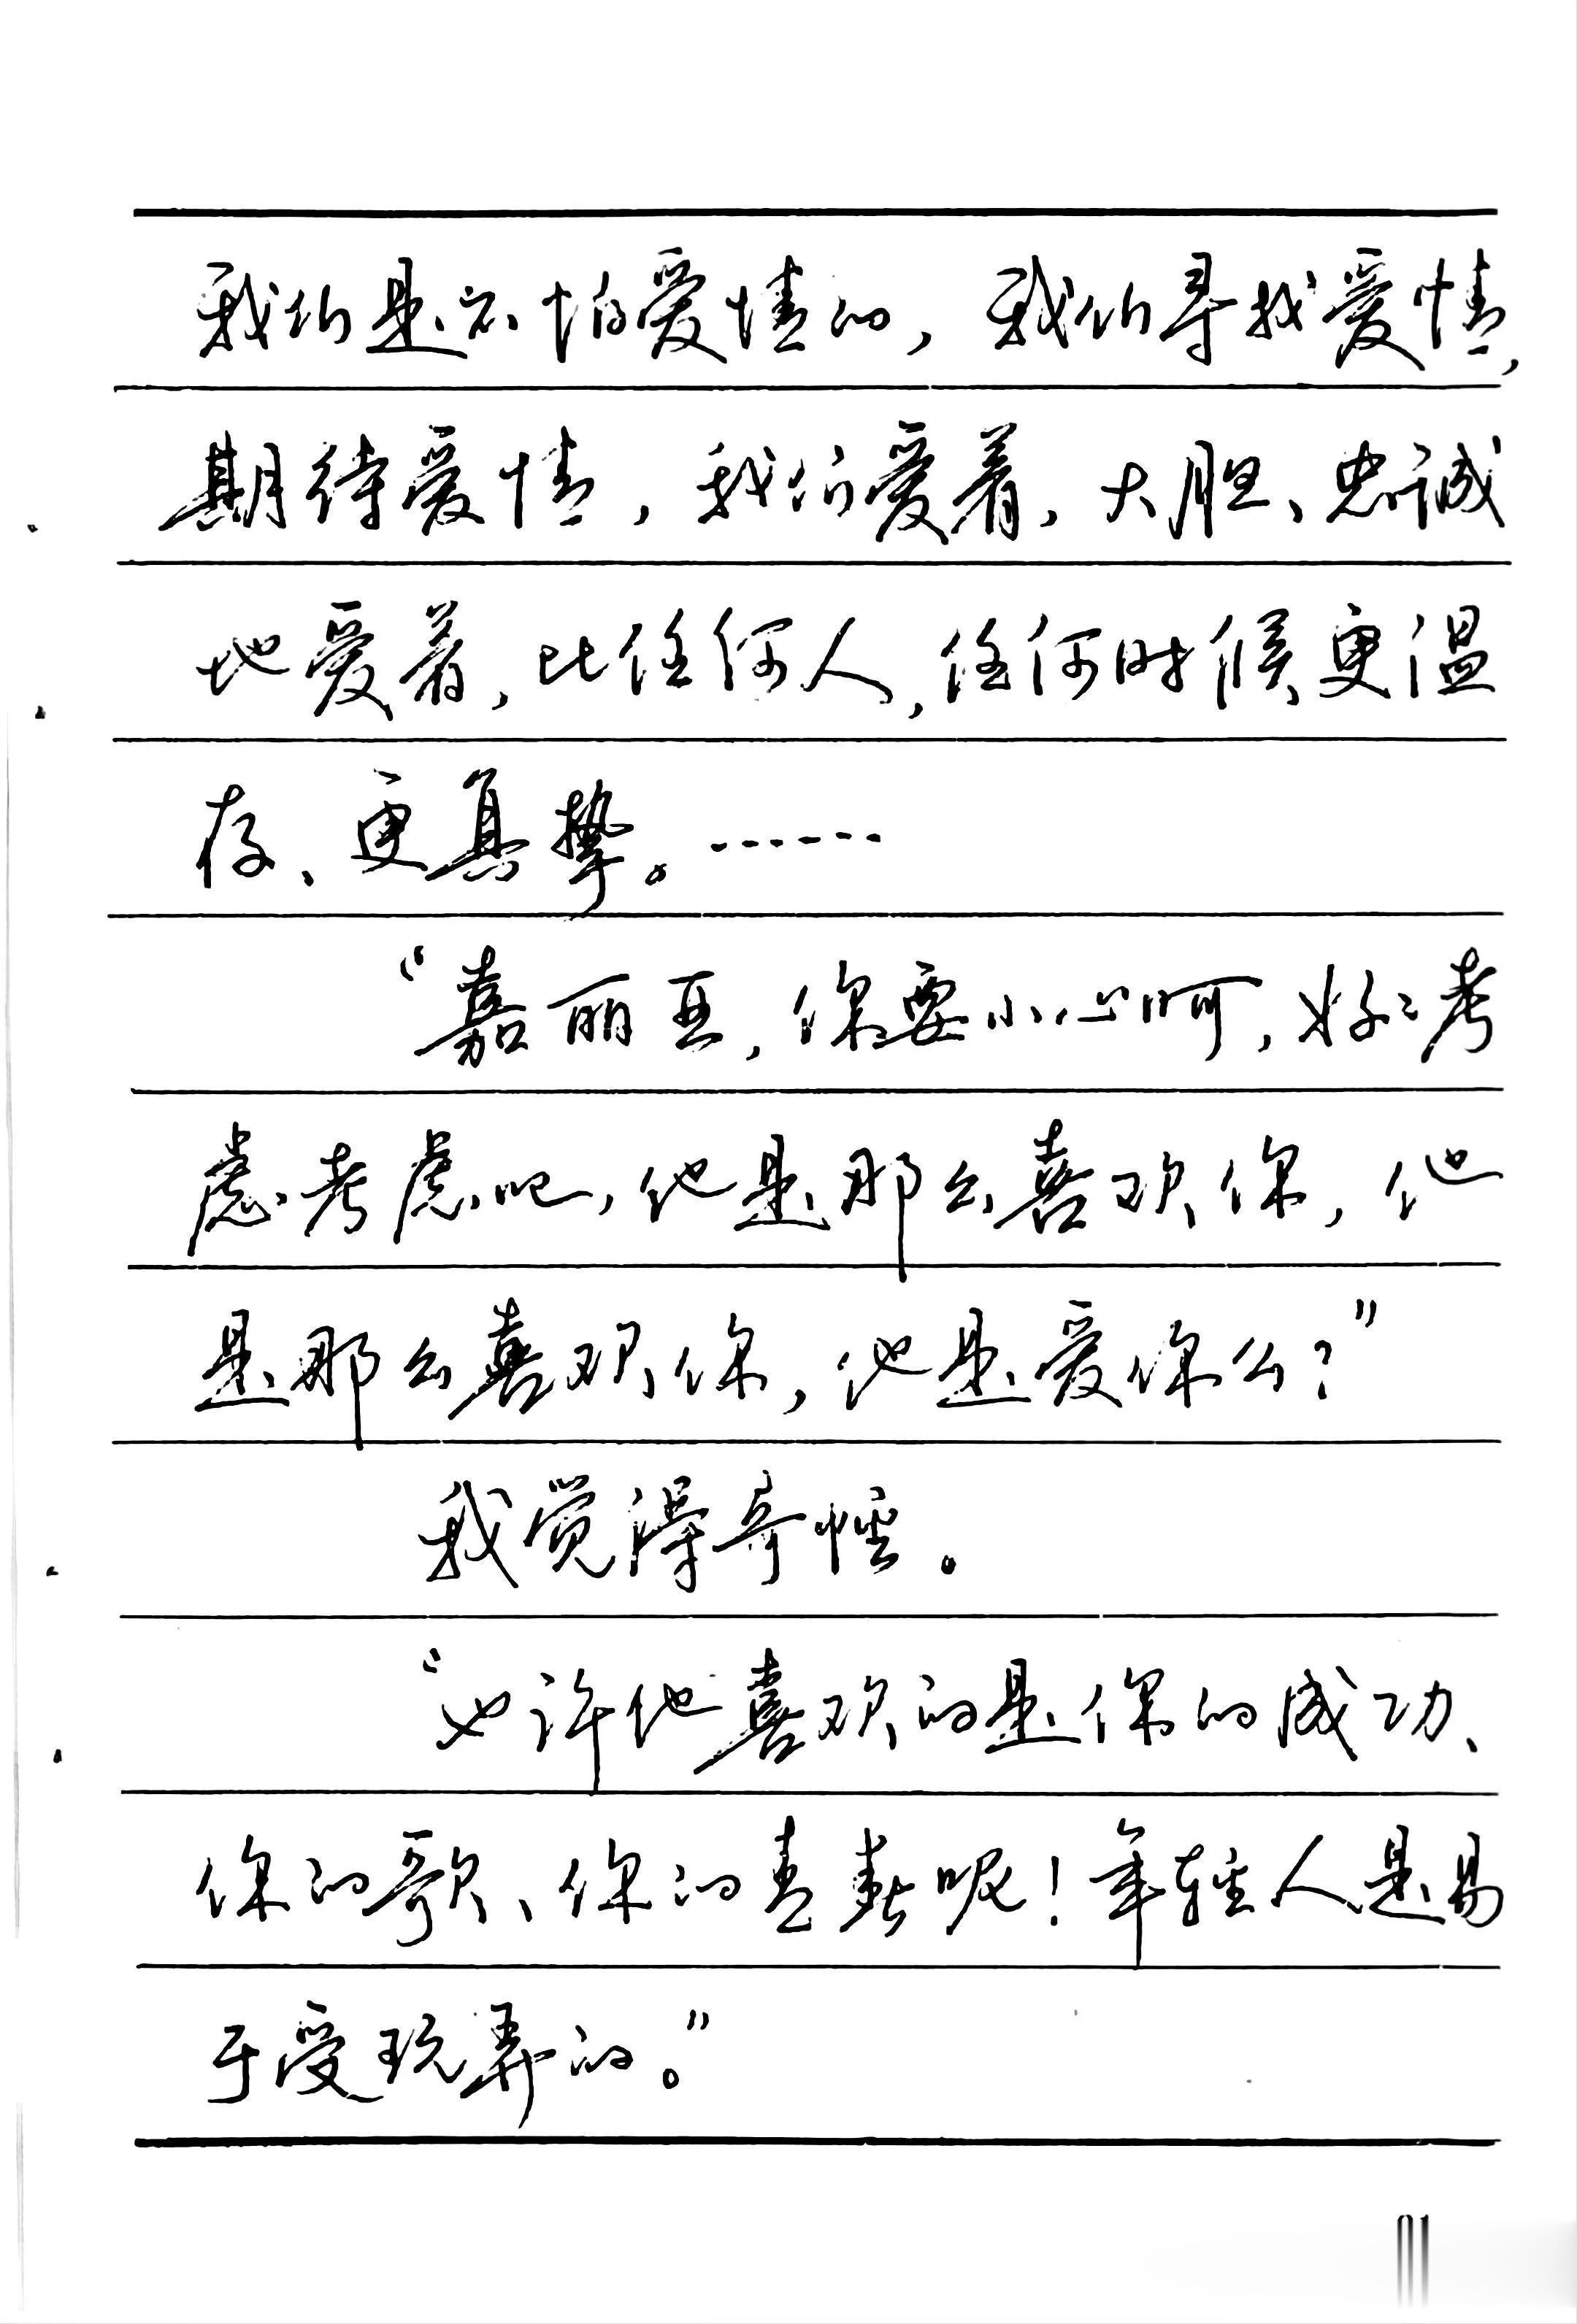 我们是不怕爱情的，我们寻找爱情，
期待爱情，我们爱着，大胆、忠诚
地爱着，比任何人，任何时候更温
存、更真挚。……
“嘉丽亚，你要小心呵，好々考
虑考虑吧，他是那么喜欢你，他
是那么喜欢你，他是爱你么？”
我觉得奇怪。
“也许他喜欢的是你的成功、
你的歌、你的青春呢！年轻人是易
于受玩弄的。”